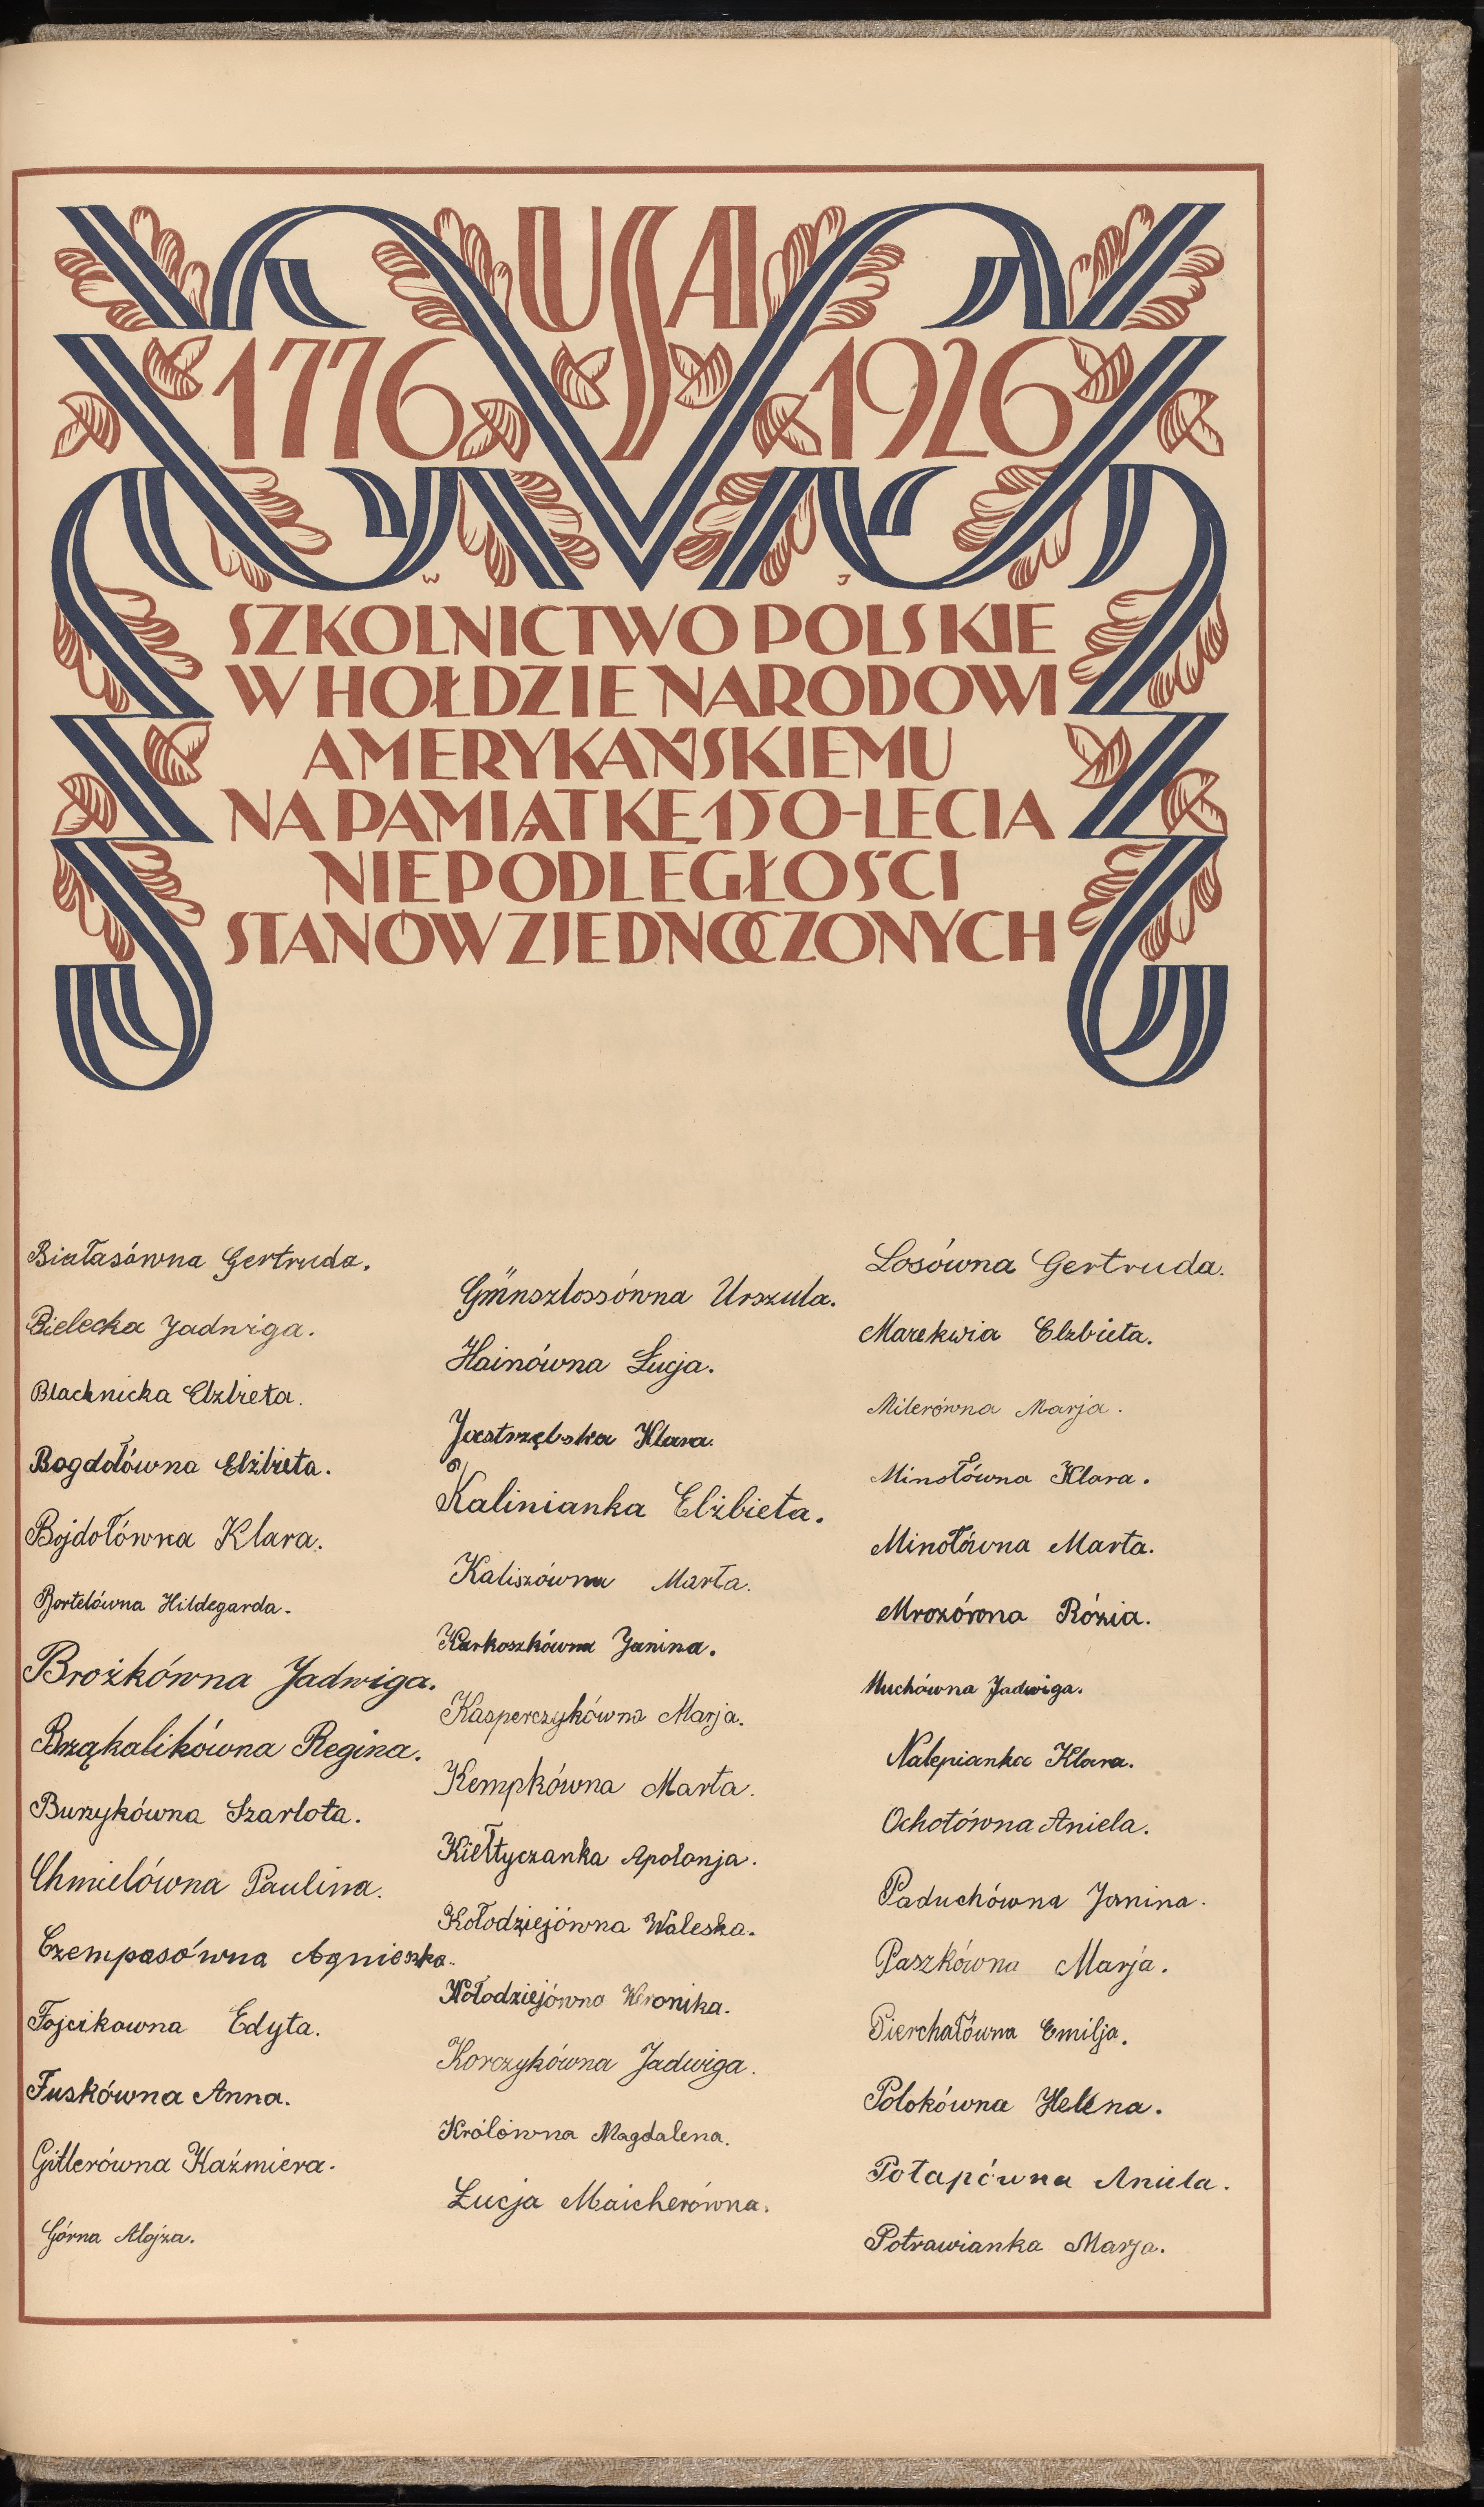 USA
1776 1926
W J
SZKOLNICTWO POLSKIE
W HOŁDZIE NARODOWI
AMERYKAŃSKIEMU
NA PAMIĄTKĘ 150-LECIA
NIEPODLEGŁOŚCI
STANÓW ZJEDNOCZONYCH
Białasówna Gertruda.
Bielecka Jadwiga.
Blachnicka Elzbieta.
Bogdołówna Elżbieta.
Bojdołówna Klara.
Bortelówna Hildegarda.
Brożkówna Jadwiga.
Brząkalikówna Regina.
Burzykówna Szarlota.
Chmielówna Paulina.
Czempasówna Agnieszka.
Fojcikowna Edyta.
Fuskówna Anna.
Gitlerówna Kaźmiera.
Górna Alojza.
Günszlossówna Urszula.
Hainówna Łucja.
Jastrzębska Klara.
Kalinianka Elżbieta.
Kaliszówna Marta.
Karkoszkówna Janina.
Kasperczykówna Marja.
Kempkówna Marta.
Kiełtyczanka Apolonja.
Kołodziejówna Waleska.
Kołodziejówna Weronika.
Korczykówna Jadwiga.
Królówna Magdalena.
Łucja Maicherówna.
Losówna Gertruda.
Marekwia Elzbieta.
Milerówna Marja.
Minołówna Klara.
Minołówna Marta.
Mrozówna Rózia.
Muchówna Jadwiga.
Nalepianka Klara.
Ochotówna Aniela.
Paduchówna Janina.
Paszkówna Marja.
Pierchałówna Emilja.
Polokówna Helena.
Potapówna Aniela.
Potrawianka Marja.